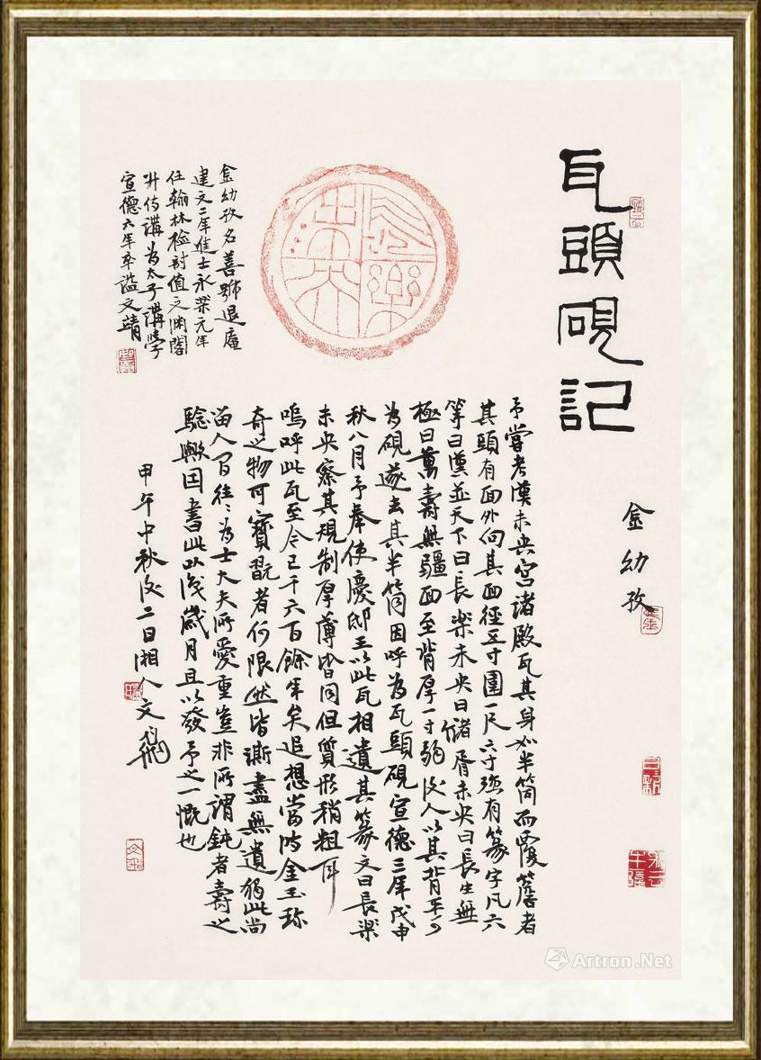 瓦頭硯記
金幼孜
予嘗考漢未央宮諸殿瓦其身如半筒而覆簷者
其頭有面外向其面徑五寸圍一尺六寸強有篆字凡六
等曰漢並天下曰長樂未央曰儲胥未央曰長生無
極曰萬壽無疆面至背厚一寸弱後人以其背平可
為硯遂去其半筒因呼為瓦頭硯宣德三年戊申
秋八月予奉使慶邸王以此瓦相遺其篆文曰長樂
未央察其規制厚薄皆同但質形稍粗耳
嗚呼此瓦至今已千六百餘年矣追想當時金玉珍
奇之物可寶翫者何限然皆澌盡無遺獨此尚
留人間往々為士大夫所愛重豈非所謂鈍者壽之
驗歟因書此以識歲月且以發予之一慨也
甲午中秋後二日湘人文
長樂未央
金幼孜名善號退庵
建文二年進士永樂元年
任翰林檢討值文淵閣
升侍講為太子講學
宣德六年卒謚文靖
Artron.Net